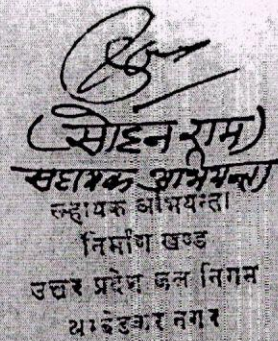 (सोहन राम)
सहायक अभियन्ता
सहायक अभियन्ता
निर्माण खण्ड
उत्तर प्रदेश जल निगम
अम्बेडकर नगर